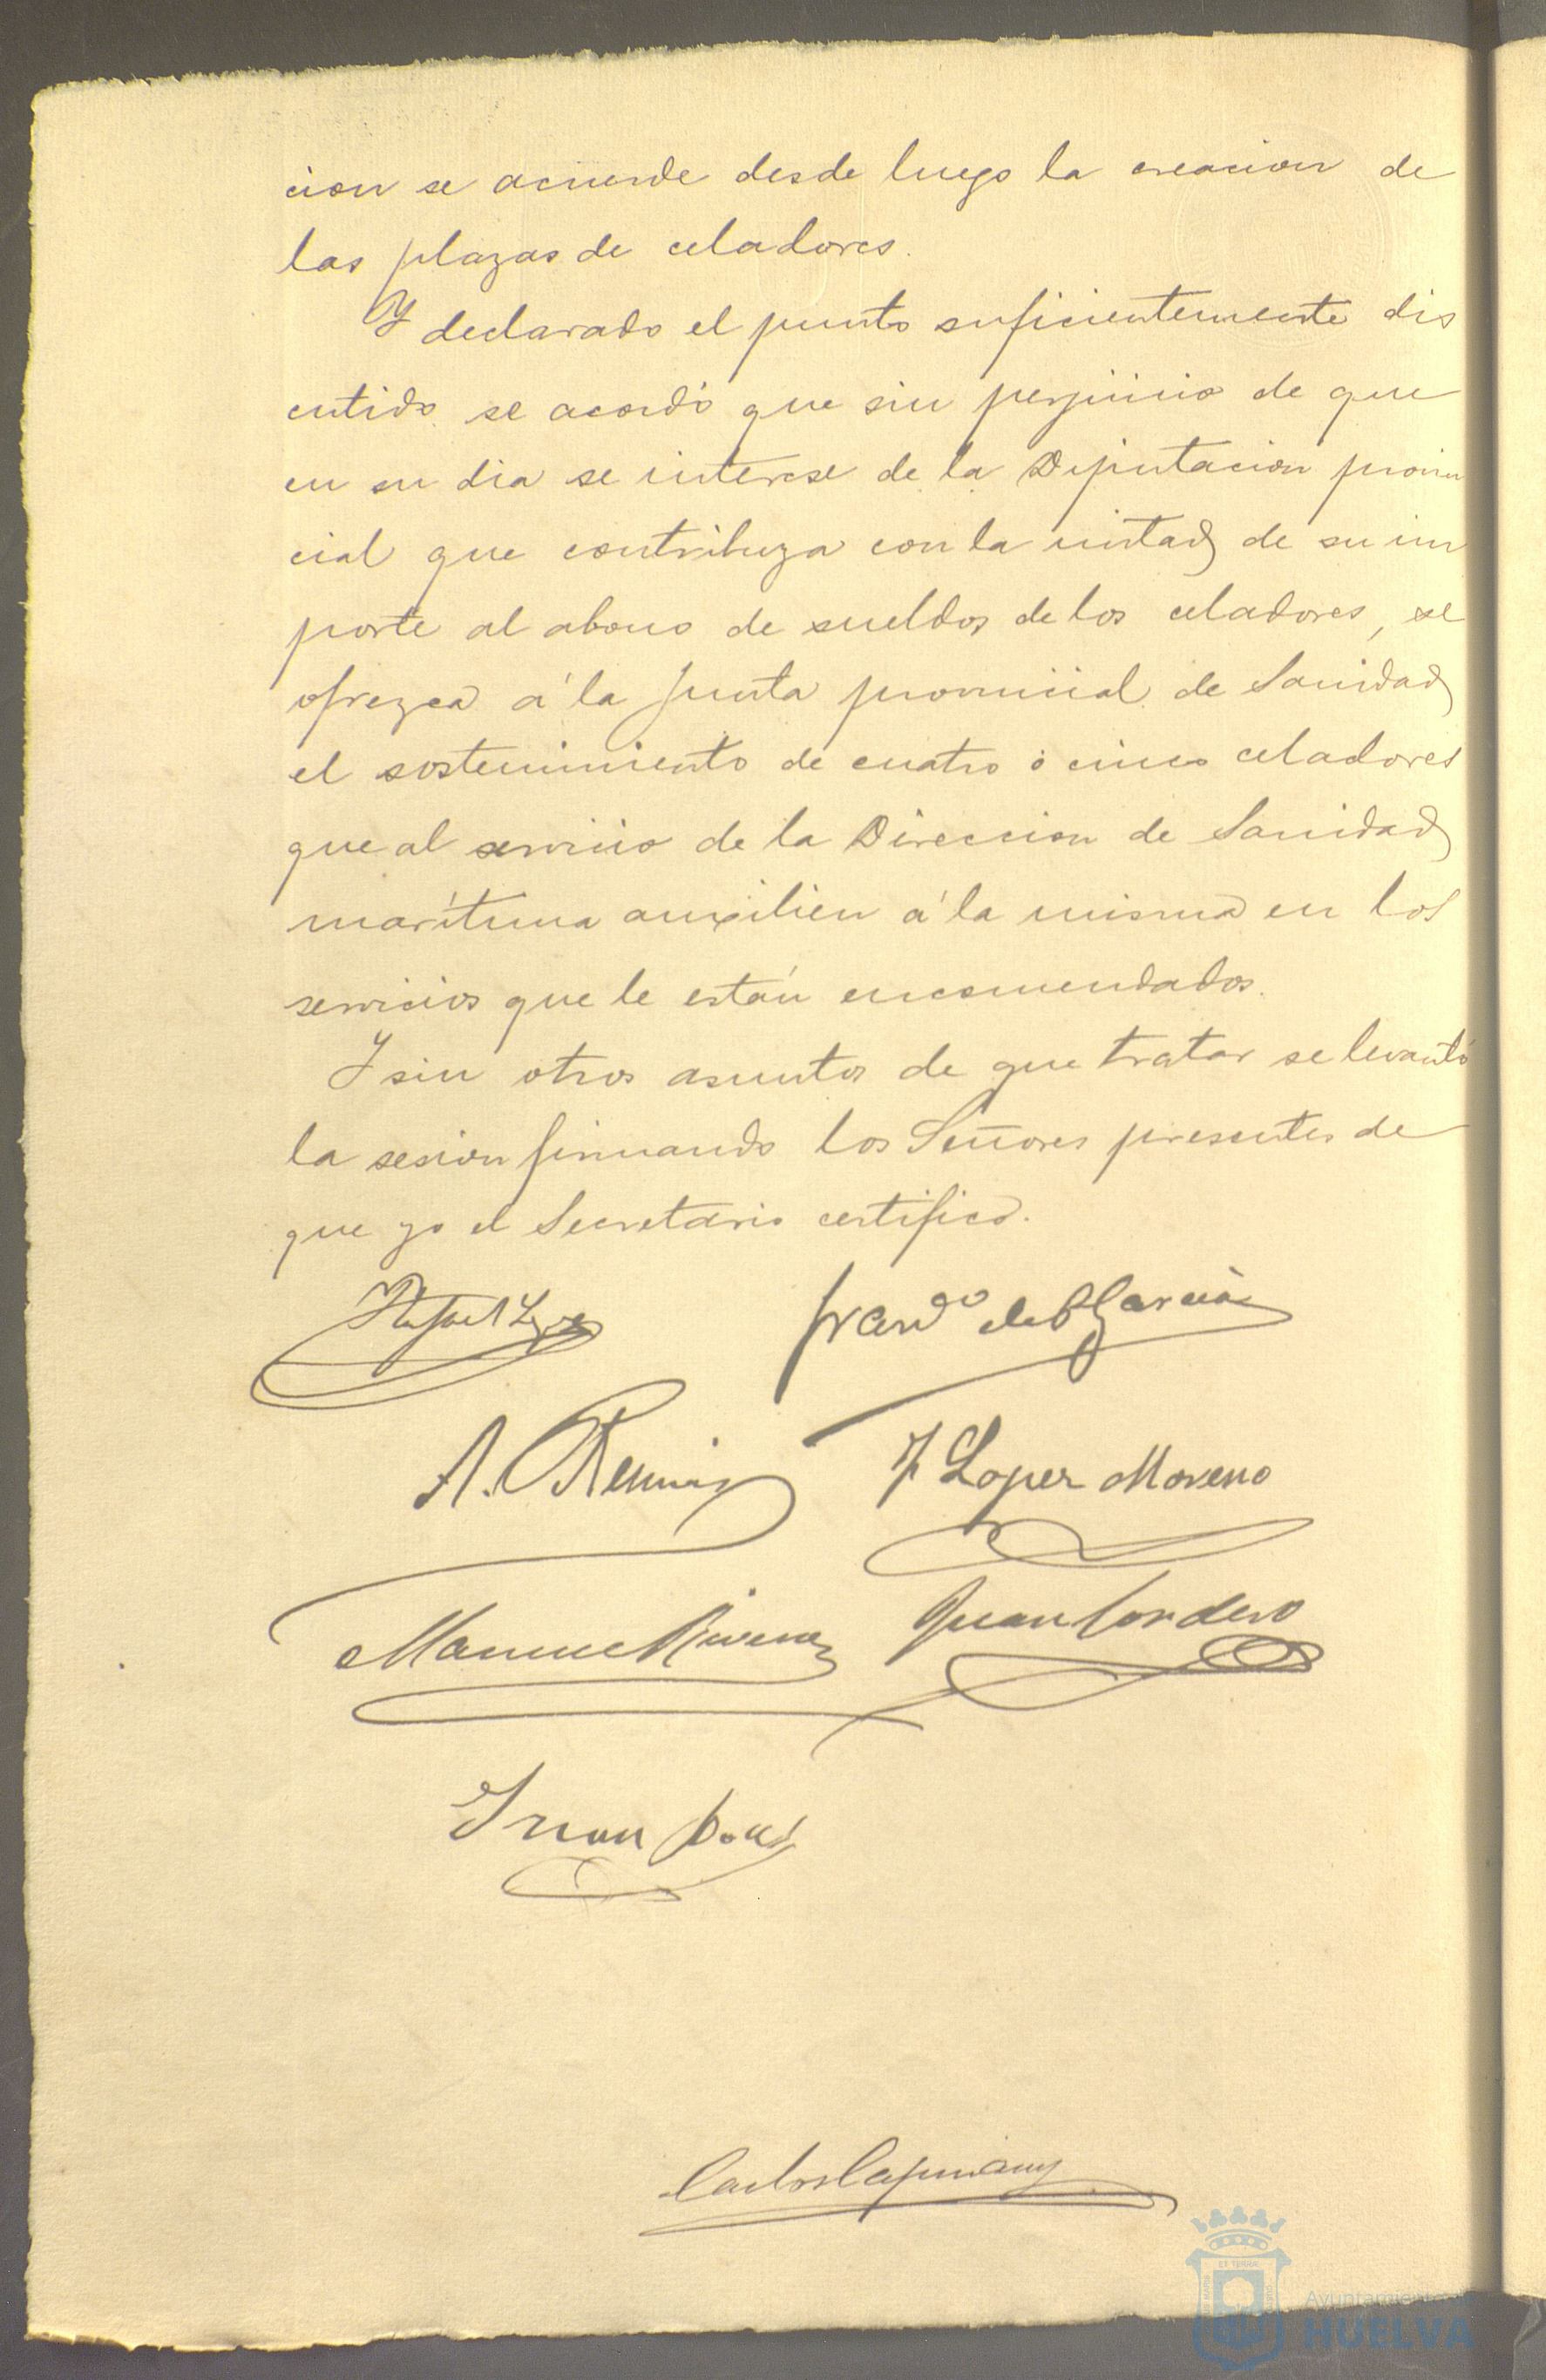 cion se acuerde desde luego la creacion de
las plazas de celadores.
Y declarado el punto suficientemente dis
cutido se acordó que sin perjuicio de que
en su dia se interese de la Diputacion provin
cial que contribuya con la mitad de su im
porte al abono de sueldos de los celadores, se
ofrezca á la Junta provincial de Sanidad
el sostenimiento de cuatro ó cinco celadores
que al servicio de la Direccion de Sanidad
marítima auxilien á la misma en los
servicios que le están encomendados.
Y sin otros asuntos de que tratar se levantó
la sesion firmando los Señores presentes de
que yo el Secretario certifico.
Rafael
Garcia
A.
J Lopez Moreno
Manuel
Juan Cordero
Juan
Carlos
Ayuntamiento de
HUELVA